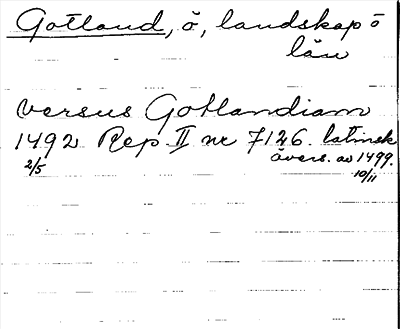 Gotland, ö, landskap o
län
versus Gotlandiam
1492 Rep. II nr 7126. latinsk
2/5 övers. av 1499.
10/11